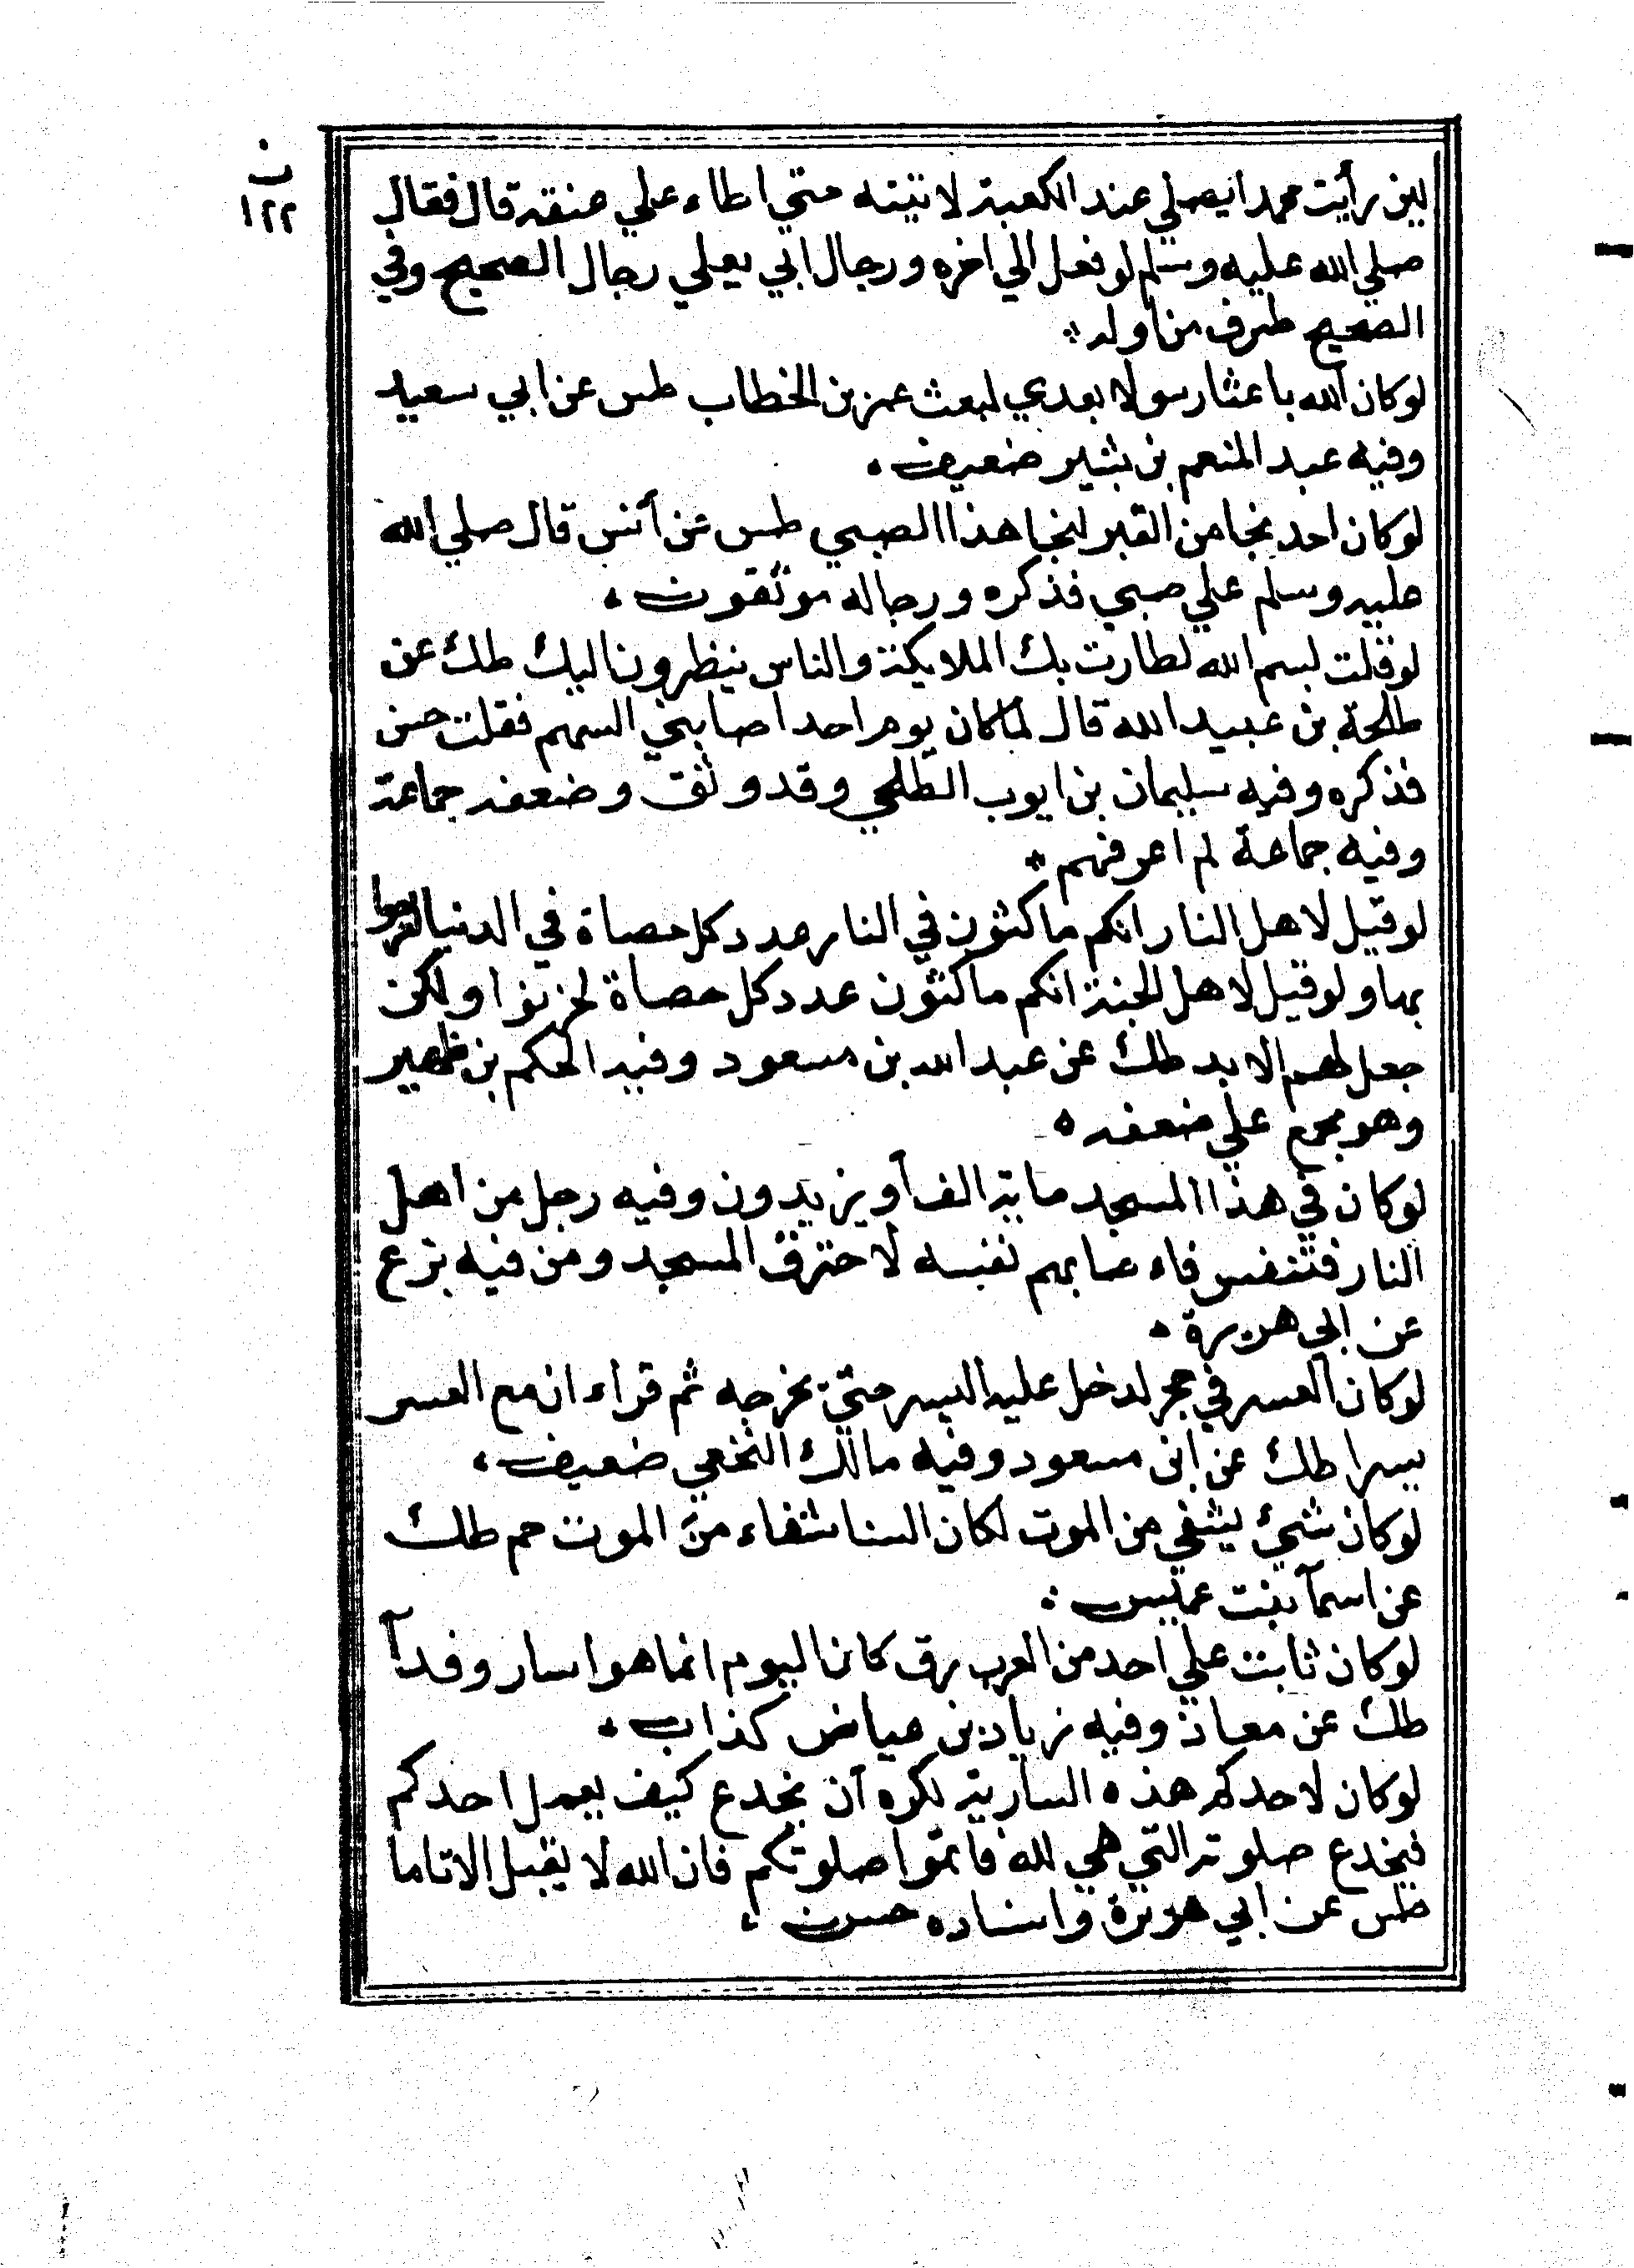 ن
١٢٢
لين رأيت محمدا يصلي عند الكعبة لاتينه حتي اطاء علي عنقه قال فقال
صلي الله عليه وسلم لو فعل الي اخره ورجال ابي يعلي رجال الصحيح وفي
الصحيح طرف من اوله
لوكان الله باعثا رسولا بعدي لبعث عمر بن الخطاب طس عن ابي سعيد
وفيه عبد المنعم بن بشير ضعيف
لوكان احد نجا من القبر لنجا هذا الصبي طس عن أنس قال صلي الله
عليه وسلم علي صبي فذكره ورجاله موثقون
لوقلت لبسم الله لطارت بك الملايكة والناس ينظرون اليك طك عن
طلحة بن عبيد الله قال لما كان يوم احد اصابني السهم فقلت حس
فذكره وفيه سليمان بن ايوب الطلحي وقد وثق وضعفه جماعة
وفيه جماعة لم اعرفهم
لوقيل لاهل النار انكم ماكثون في النار عدد كل حصاة في الدنيا لفرحوا
بها ولوقيل لاهل الجنة انكم ماكثون عدد كل حصاة لحزنوا ولكن
جعل لهم الابد طك عن عبد الله بن مسعود وفيه الحكم بن ظهير
وهو مجمع علي ضعفه
لوكان في هذا المسجد ماية الف أو يزيدون وفيه رجل من اهل
النار فتنفس فاصابهم نفسه لاحترق المسجد ومن فيه بزع
عن ابي هريرة
لوكان العسر في حجر لدخل عليه اليسر حتي يخرجه ثم قراء ان مع العسر
يسرا طك عن ابن مسعود وفيه مالك النخعي ضعيف
لوكان شئ يشفي من الموت لكان السنا شفاء من الموت حم طك
عن اسمآ بنت عميس
لوكان ثابت علي احد من العرب رق كان اليوم انما هو اسار وفدآ
طك عن معاذ وفيه زياد بن عياض كذاب
لوكان لاحدكم هذه السارية لكره أن يخدع كيف يعمل احدكم
فيخدع صلوته التي هي لله فاتموا صلوتكم فان الله لا يقبل الا تاما
طس عن ابي هريرة واسناده حسن